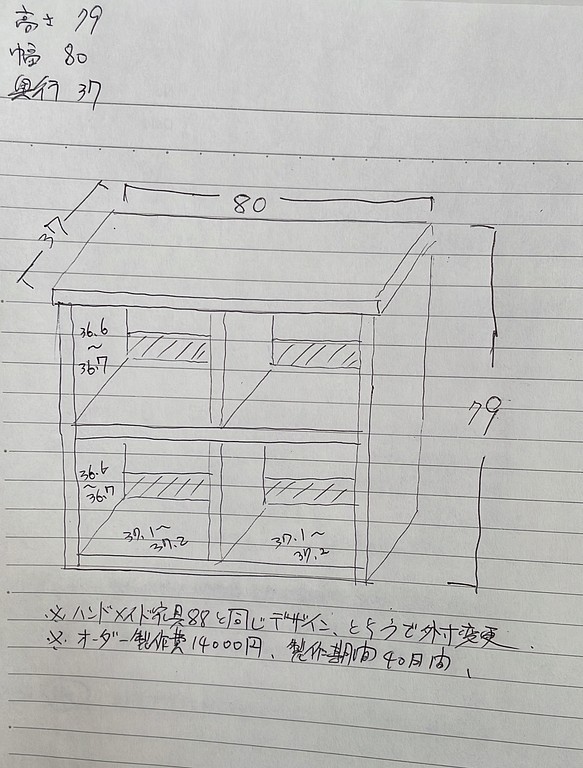 高さ 79
幅 80
奥行 37
80
37
36.6
～
36.7
79
36.6
～
36.7
37.1～
37.2
37.1～
37.2
※ ハンドメイド家具88と同じデザイン、とちうで外寸変更.
※ オーダー製作費14000円、製作期間40日間、